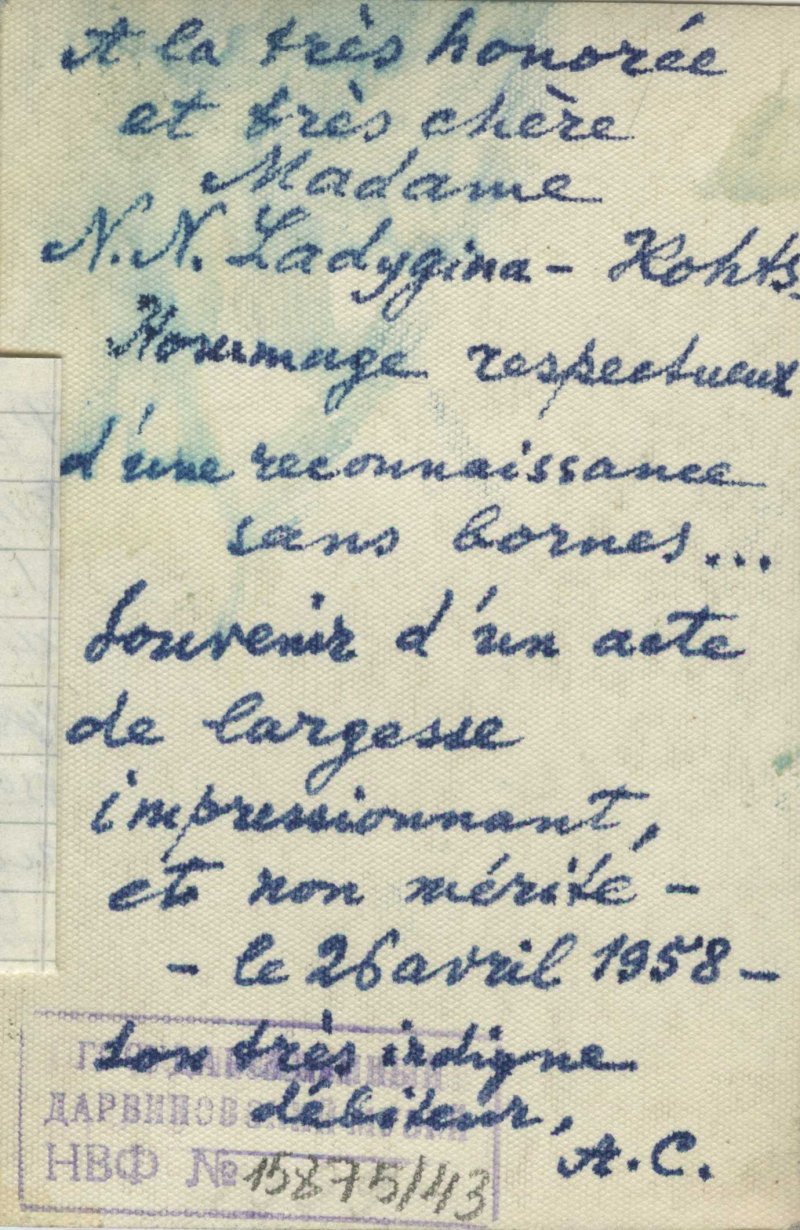 A la très honorée
et très chère
Madame
N.N. Ladygina - Kohts.
Hommage respectueux
d'une reconnaissance
sans bornes...
Souvenir d'un acte
de largesse
impressionnant,
et non mérité -
- le 26 avril 1958 -
Son très indigne
débiteur,
A.C.
ГОСУДАРСТВЕННЫЙ
ДАРВИНОВСКИЙ МУЗЕЙ
НВФ № 15875/43